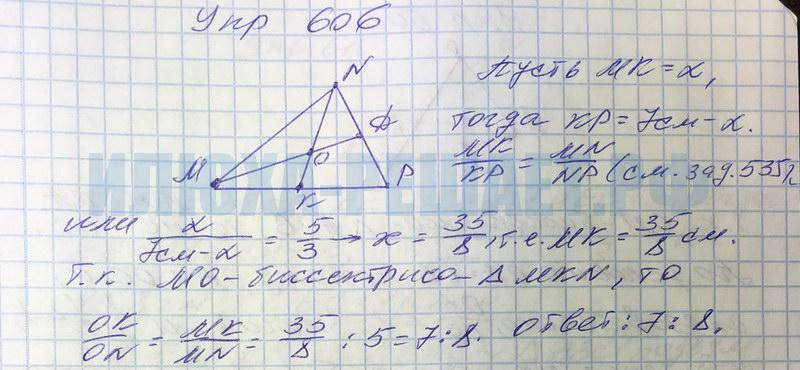 Упр 606
N
D
O
M
K
P
Пусть MK = x,
тогда KP = 7см - x.
MK/KP = MN/NP (см. зад. 535),
или x/(7см - x) = 5/3 → x = 35/8, т.е. MK = 35/8 см.
Т.к. MO - биссектриса - Δ MKN, то
OK/ON = MK/MN = 35/8 : 5 = 7 : 8. Ответ: 7 : 8.
ИЛЮХА РЕШАЕТ.РФ